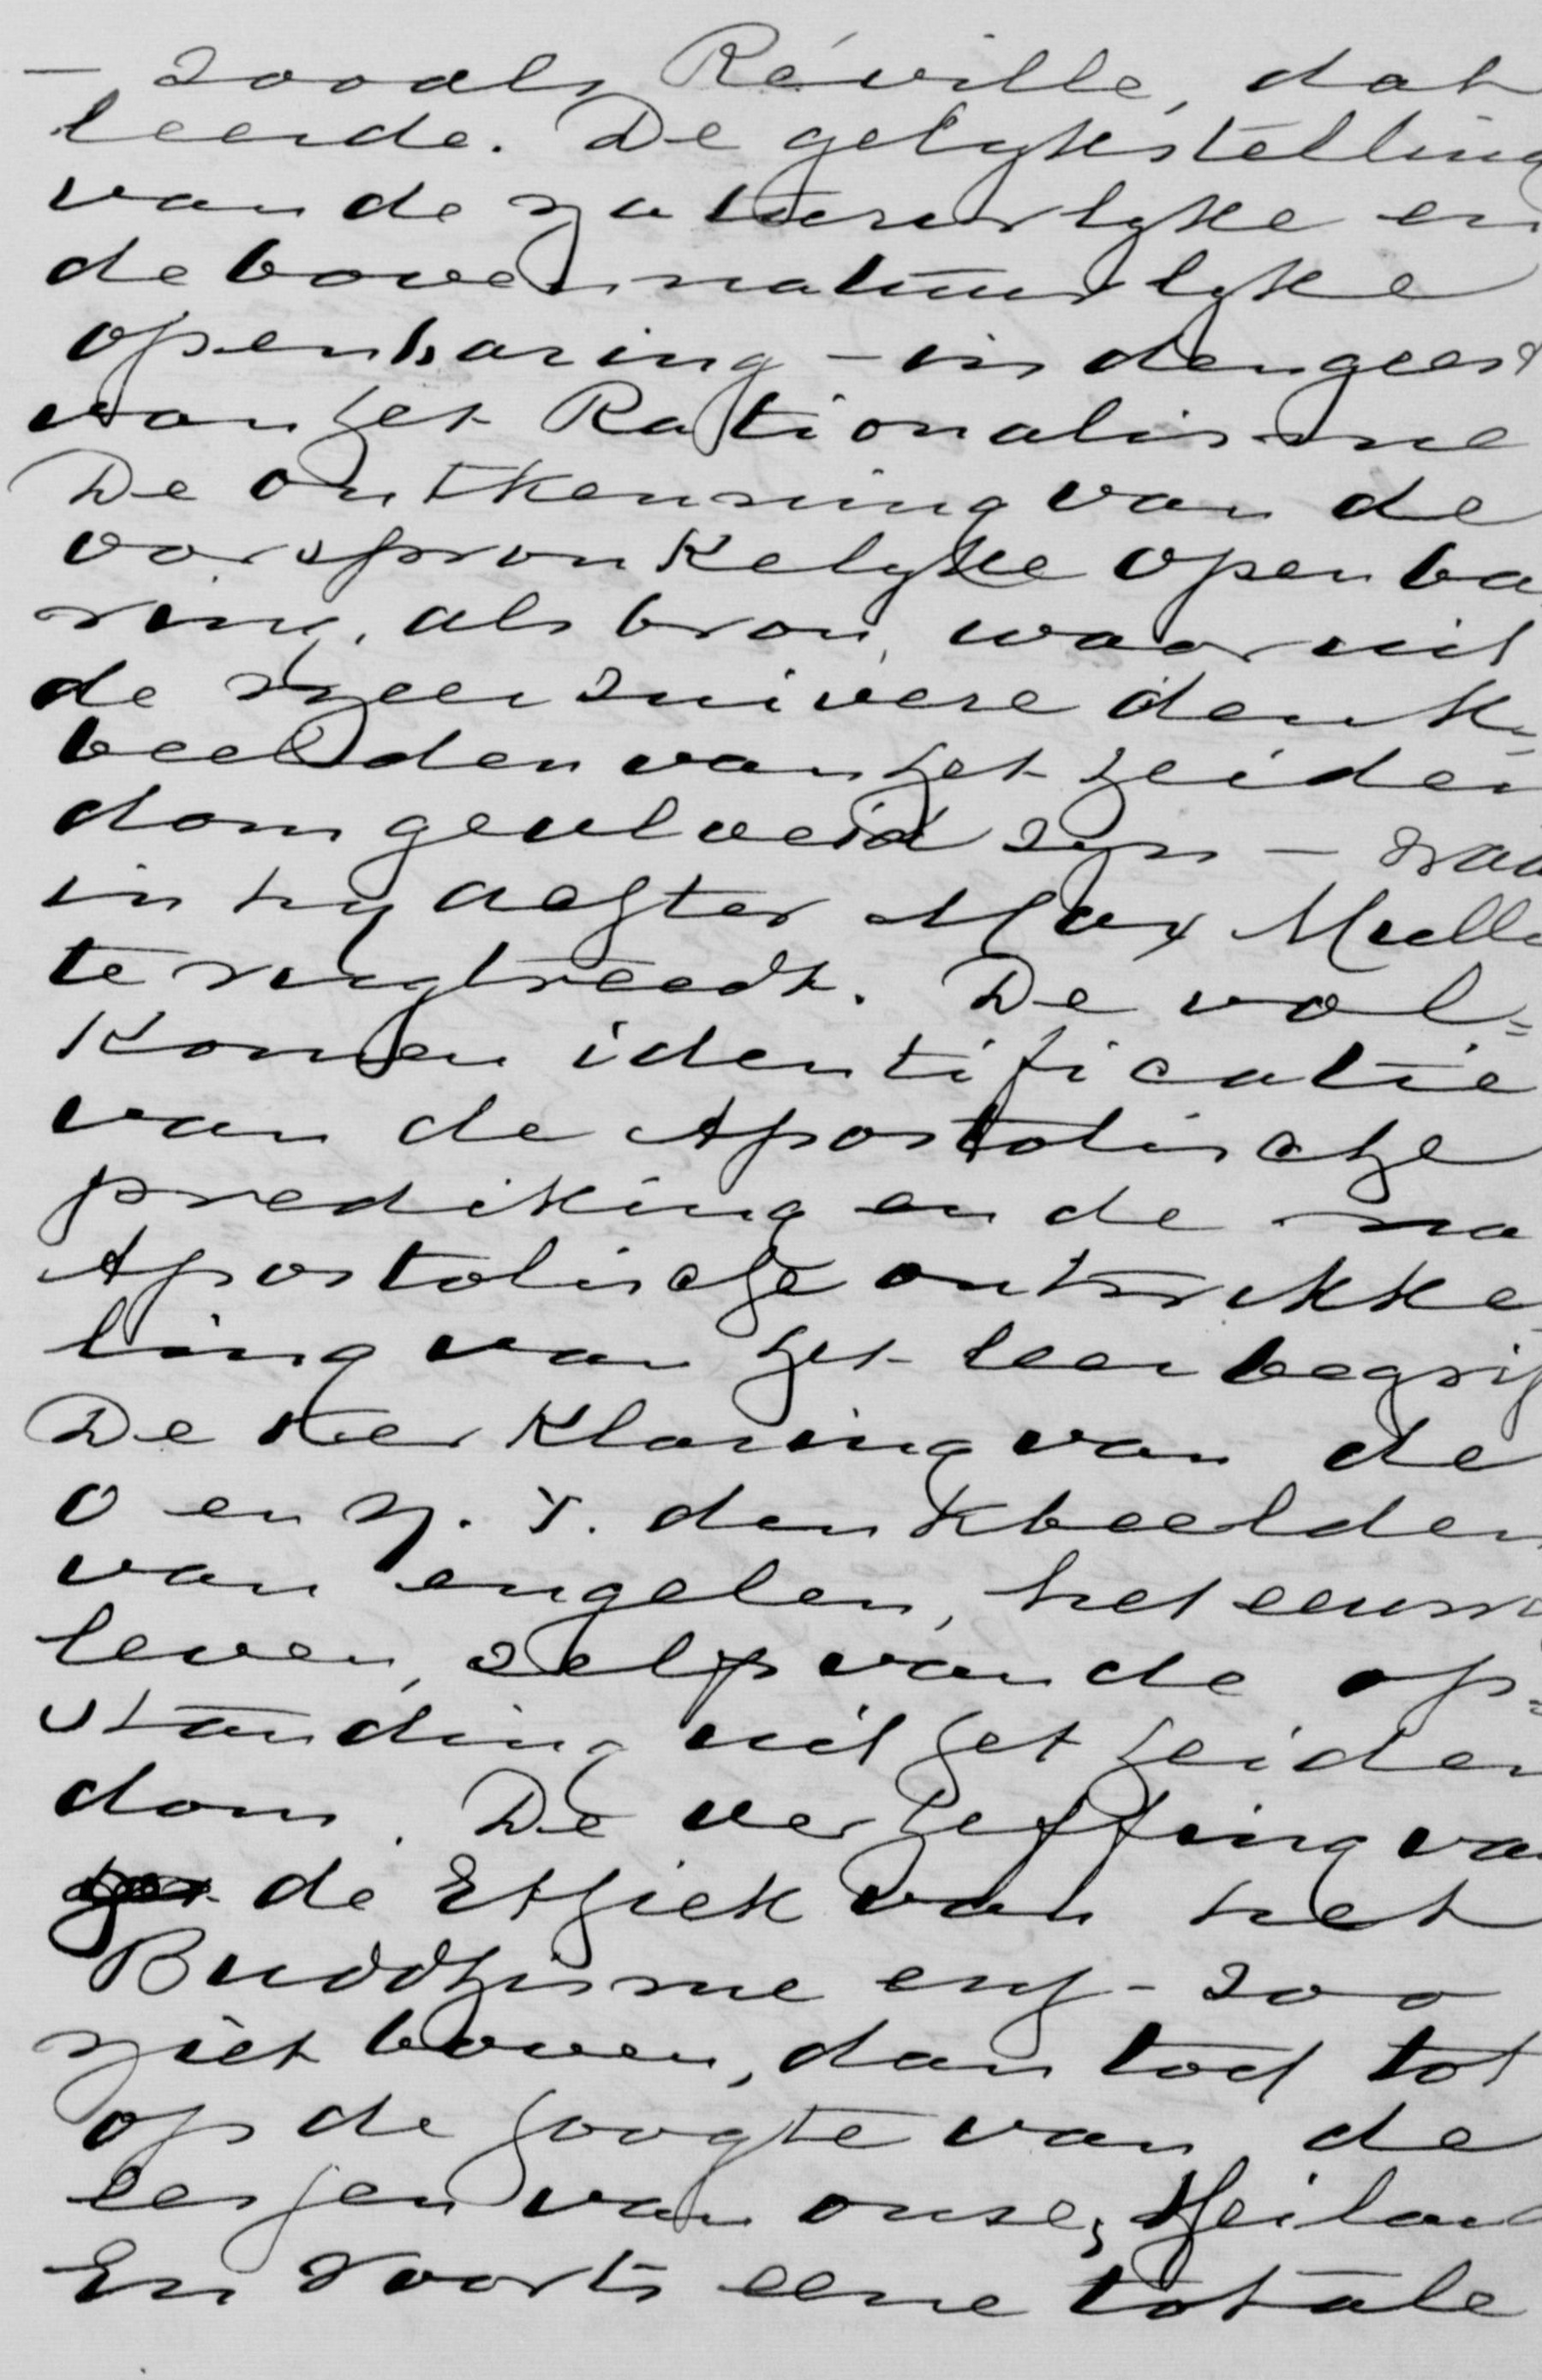 – zooals Réville, dat
leerde. De gelykstelling
van de natuurlyke en
de bovennatuurlyke
openbaring – in den geest
van het Rationalisme
De ontkenning van de
oorspronkelyke openba
ring, als bron, waaruit
de meer zuivere denk-
beelden van het heiden
dom gevloeid zyn – waar
in hy achter Max Mulle
terugtreedt. De vol=
komen identificatie
van de Apostolische
prediking en de na
Apostolische ontwikke
ling van het leerbegrip
De verklaring van de
O en N. T. denkbeelden
van engelen, het eeuw
leven, zelfs van de op=
standing uit het heiden
dom. De verheffing van
de Ethiek van het
Buddhisme enz – zoo
niet boven, dan toch tot
op de hoogte van de
lessen van onzen Heiland
En voorts eene totale